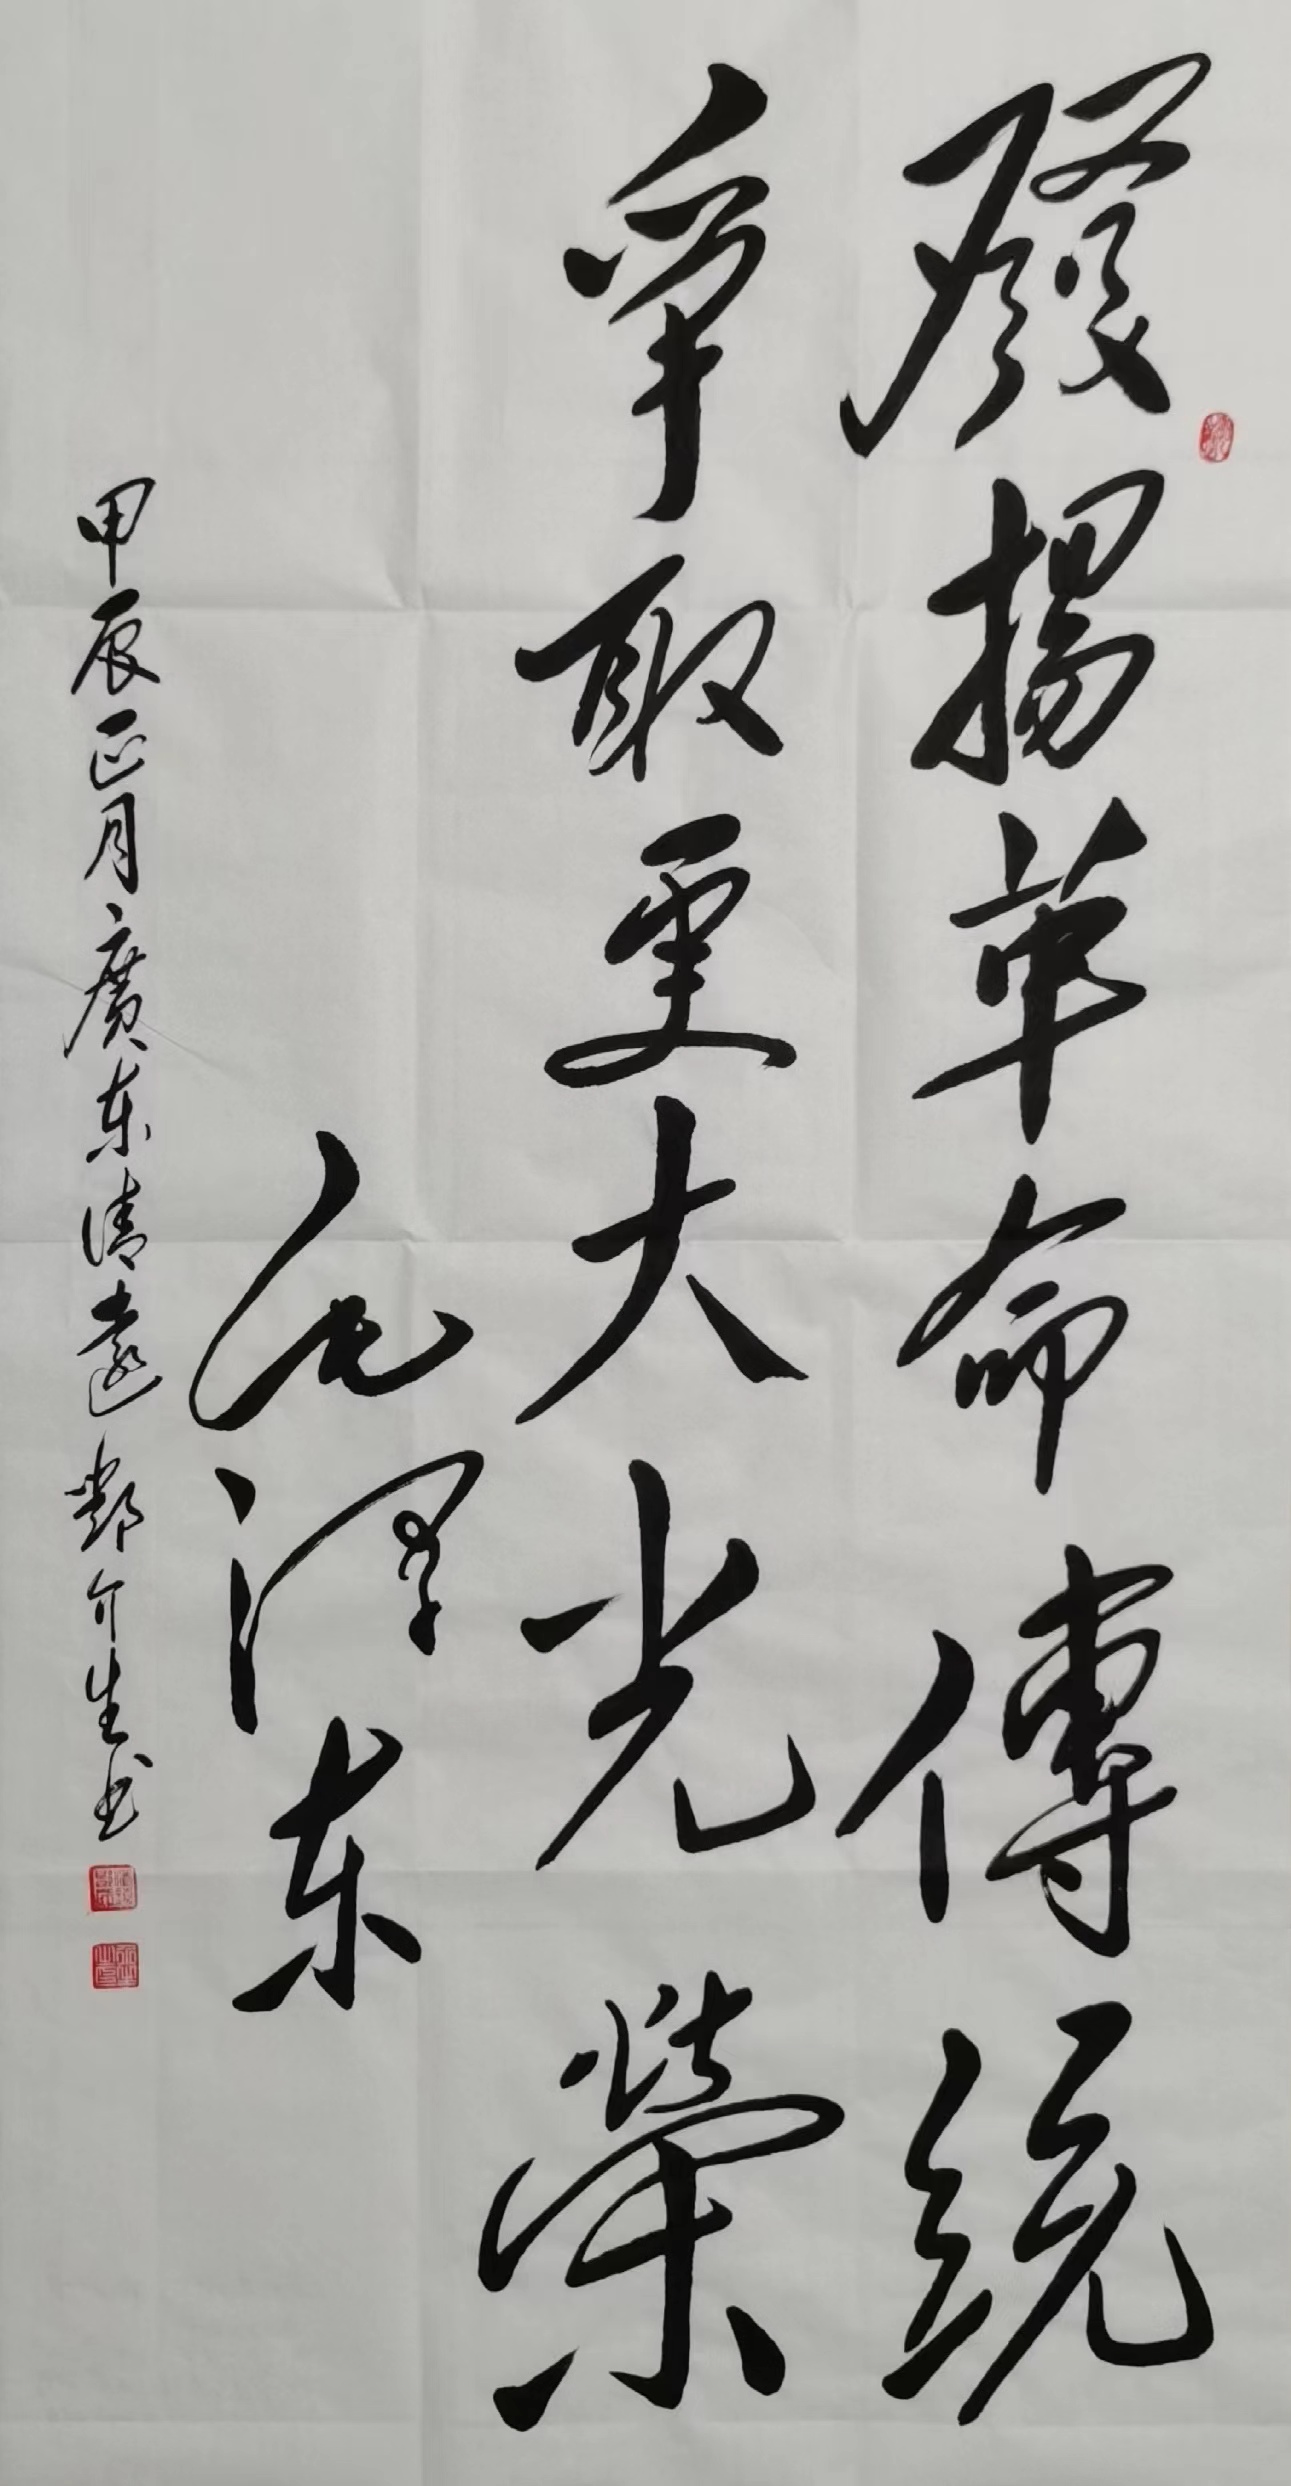 發揚革命傳統
爭取更大光榮
毛澤东
甲辰正月廣东清遠鄭介生书